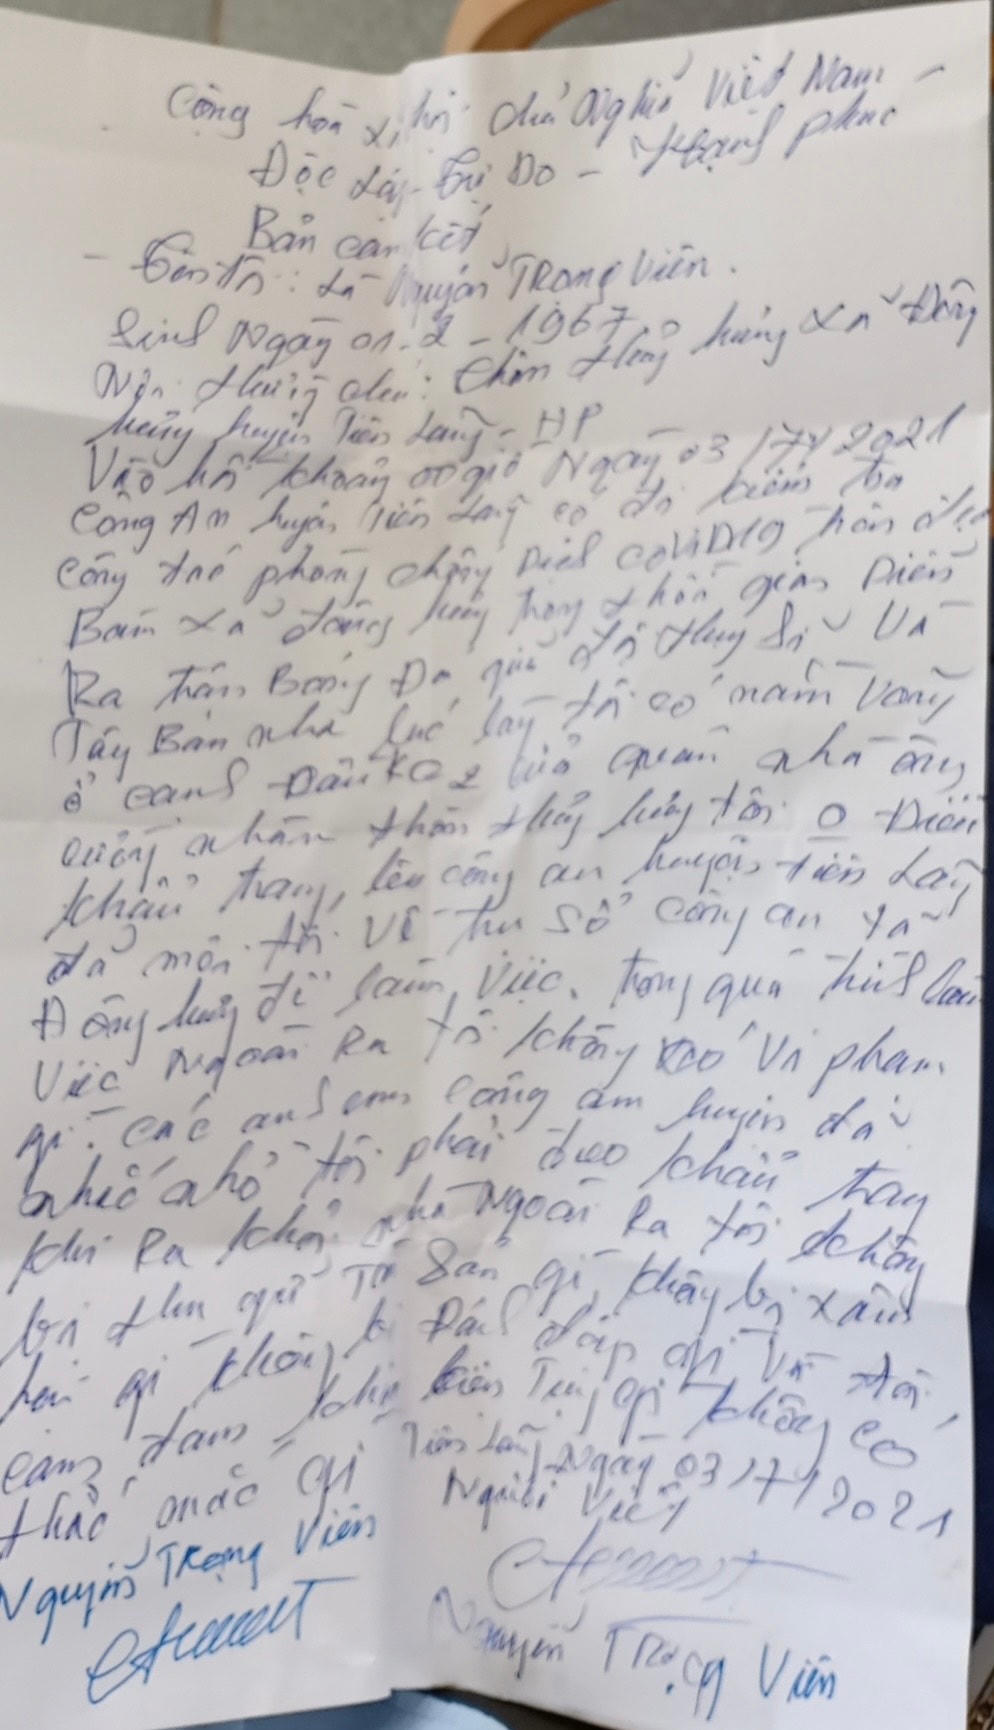 Cộng hòa xã hội chủ Nghĩa Việt Nam -
Độc Lập - Tự Do - Hạnh phúc
Bản cam kết
- Tên tôi: Là Nguyễn TRọng Viên.
Sinh Ngày 01 - 2 - 1967
Nơi thường chú: thôn thủy hưng Xã Đông
hưng huyện Tiên Lãng - HP
Vào hồi khoảng 00 giờ Ngày 03/7/2021
Công An huyện Tiên Lãng có đi kiểm tra
công tác phòng chống Dịch COVID19 trên địa
Bàn xã đông hưng trong thời gian Diễn
Ra trận Bóng Đá giữa đội thuy Sĩ Và
Tây Ban nha lúc tôi có nằm Võng
ở cạnh của quán nhà ông
thôn thủy hưng tôi 0 Đieo
khẩu trang, lên công an huyện tiên Lãng
đã mời tôi Về trụ sở công an xã
Đông hưng để làm Việc. trong quá trình làm
Việc Ngoài Ra tôi không có Vi phạm
gì. các anh em công an huyện đã
nhắc nhở tôi phải đeo khẩu trang
khi Ra khỏi nhà Ngoài Ra tôi không
bị thu giữ Tài Sản gì, không bị xâm
hại gì không bị Đánh đập gì Và tôi
cam đam không kiện Tụng gì không có
thắc mắc gì Tiên Lãng Ngày 03/7/2021
Người Viết
Nguyễn TRọng Viên
Nguyễn TRọng Viên